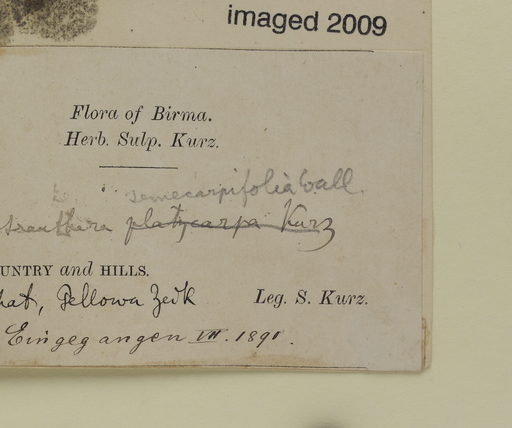 imaged 2009
Flora of Birma.
Herb. Sulp. Kurz.
semecarpifolia Wall.
platycarpa Kurz
UNTRY and HILLS.
hat, Pellowa Zeik Leg. S. Kurz.
Eingegangen VII. 1891.